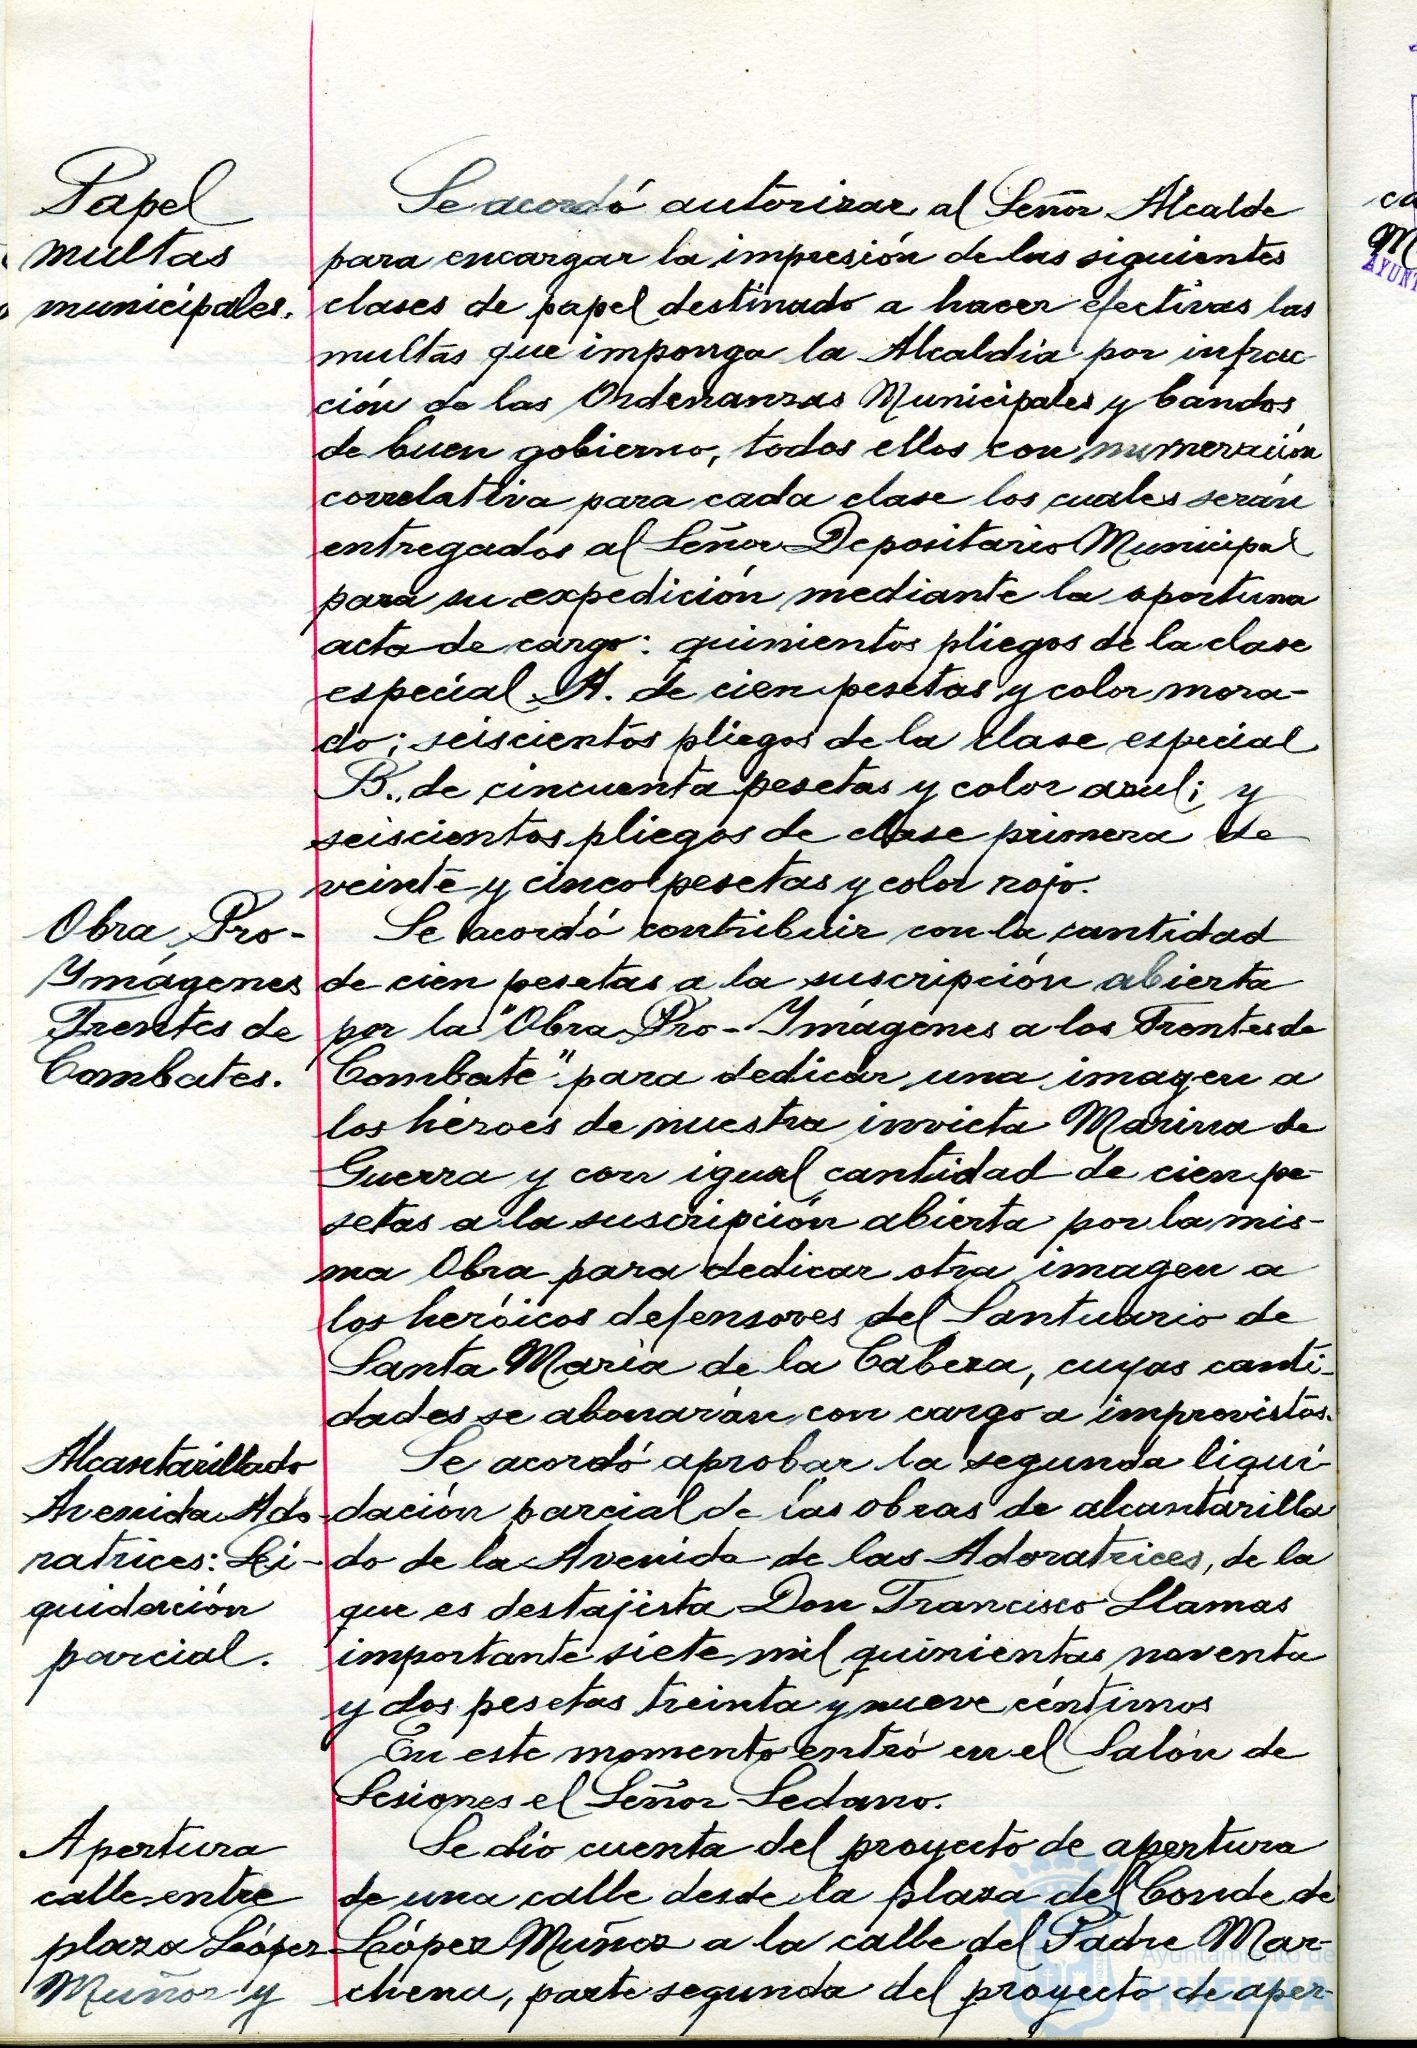 Papel
multas
municipales.
Se acordó autorizar al Señor Alcalde
para encargar la impresión de las siguientes
clases de papel destinado a hacer efectivas las
multas que imponga la Alcaldía por infrac-
ción de las Ordenanzas Municipales y bandos
de buen gobierno, todos ellos con numeración
correlativa para cada clase los cuales serán
entregados al Señor Depositario Municipal
para su expedición mediante la oportuna
acta de cargo: quinientos pliegos de la clase
especial A. de cien pesetas y color mora-
do; seiscientos pliegos de la clase especial
B., de cincuenta pesetas y color azul; y
seiscientos pliegos de clase primera de
veinte y cinco pesetas y color rojo.
Obra Pro-
Ymágenes
Frentes de
Combates.
Se acordó contribuir con la cantidad
de cien pesetas a la suscripción abierta
por la "Obra Pro-Ymágenes a los Frentes de
Combate" para dedicar una imagen a
los héroes de nuestra invicta Marina de
Guerra y con igual cantidad de cien pe-
setas a la suscripción abierta por la mis-
ma Obra para dedicar otra imagen a
los heróicos defensores del Santuario de
Santa María de la Cabeza, cuyas canti-
dades se abonarán con cargo a improvistos.
Alcantarillado
Avenida Ado-
ratrices: Li-
quidación
parcial.
Se acordó aprobar la segunda liqui-
dación parcial de las obras de alcantarilla
do de la Avenida de las Adoratrices, de la
que es destajista Don Francisco Llamas
importante siete mil quinientas noventa
y dos pesetas treinta y nueve céntimos
En este momento entró en el Salón de
Sesiones el Señor Sedano.
Apertura
calle entre
plaza López
Muñoz y
Se dio cuenta del proyecto de apertura
de una calle desde la plaza del Conde de
López Muñoz a la calle del Padre Mar-
chena, parte segunda del proyecto de aper-
Ayuntamiento de
HUELVA
ca
AYUNT